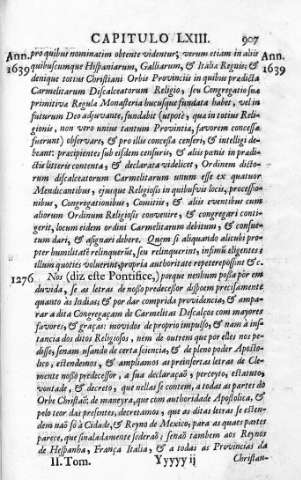 CAPITULO LXIII. 907
Ann. 1639
Ann. 1639
pro quibus nominatim obtente videntur, verum etiam in aliis
quibuscumque Hispaniarum, Galliarum, & Italiæ Regnis; &
denique totius Christiani Orbis Provinciis in quibus prædicta
Carmelitarum Discalceatorum Religio, seu Congregatio sua
primitiva Regula Monasteria hucusque fundata habet, vel in
futurum Deo adjuvante, fundabit (utpotè, quæ in totius Reli-
gionis, non vero unius tantum Provintiæ, favorem concessæ
fuerunt) observari, & pro illis concessa censeri, & intelligi de-
beant: præcipientes sub eisdem censuris, & aliis pœnis in prædi-
ctis litteris contentis, & declarata videlicet, Ordinem dicto-
rum discalceatorum Carmelitarum unum esse ex quatuor
Mendicantibus, ejusque Religiosis in quibusvis locis, processio-
nibus, Congregationibus, Comitiis, & aliis eventibus cum
aliorum Ordinum Religiosis convenire, & congregari conti-
gerit, locum eidem ordini Carmelitarum debitum, & consue-
tum dari, & assignari debere. Quem si aliquando alicubi pro-
pter humilitatẽ relinquerit, seu relinquerint, insimili eligentes
illum quoties voluerint, propria authoritate repeterepossint & c.
1276 Nòs (diz este Pontifice,) porque nenhum possa pòr em
duvida, se as letras de nosso predecessor dispoem precisamente
quanto às Indias; & por dar comprida providencia, & ampa-
rar a dita Congregaçam de Carmelitas Descalços com mayores
favores, & graças: movidos de proprio impulso, & nam à ins-
tancia dos ditos Religiosos, nem de outrem que por elles nos pe-
disse, senam usando de certa sciencia, & de pleno poder Aposto-
lico, estendemos, & ampliamos as prinsertas letras de Cle-
mente nosso predecessor, a sua declaraçaõ, perceyto, estatuto,
vontade, & decreto, que nellas se contem, a todas as partes do
Orbe Christaõ: de maneyra, que com authoridade Apostolica, &
pelo teor das presentes, decretamos, que as ditas letras se esten-
dem naõ sò à Cidade, & Reyno de Mexico, para as quaes partes
parece, que sinaladamente sederaõ; senaõ tambem aos Reynos
de Hespanha, França Italia, & a todas as Provincias da
II. Tom. Yyyyy ij Christian-